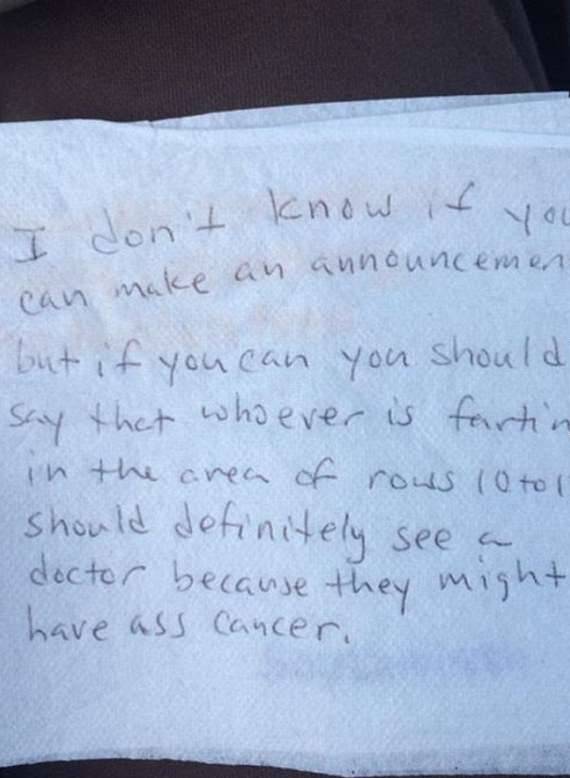 I don't know if you
can make an announcemen
but if you can you should
say that whoever is fartin
in the area of rows 10 to 1
should definitely see a
doctor because they might
have ass cancer.